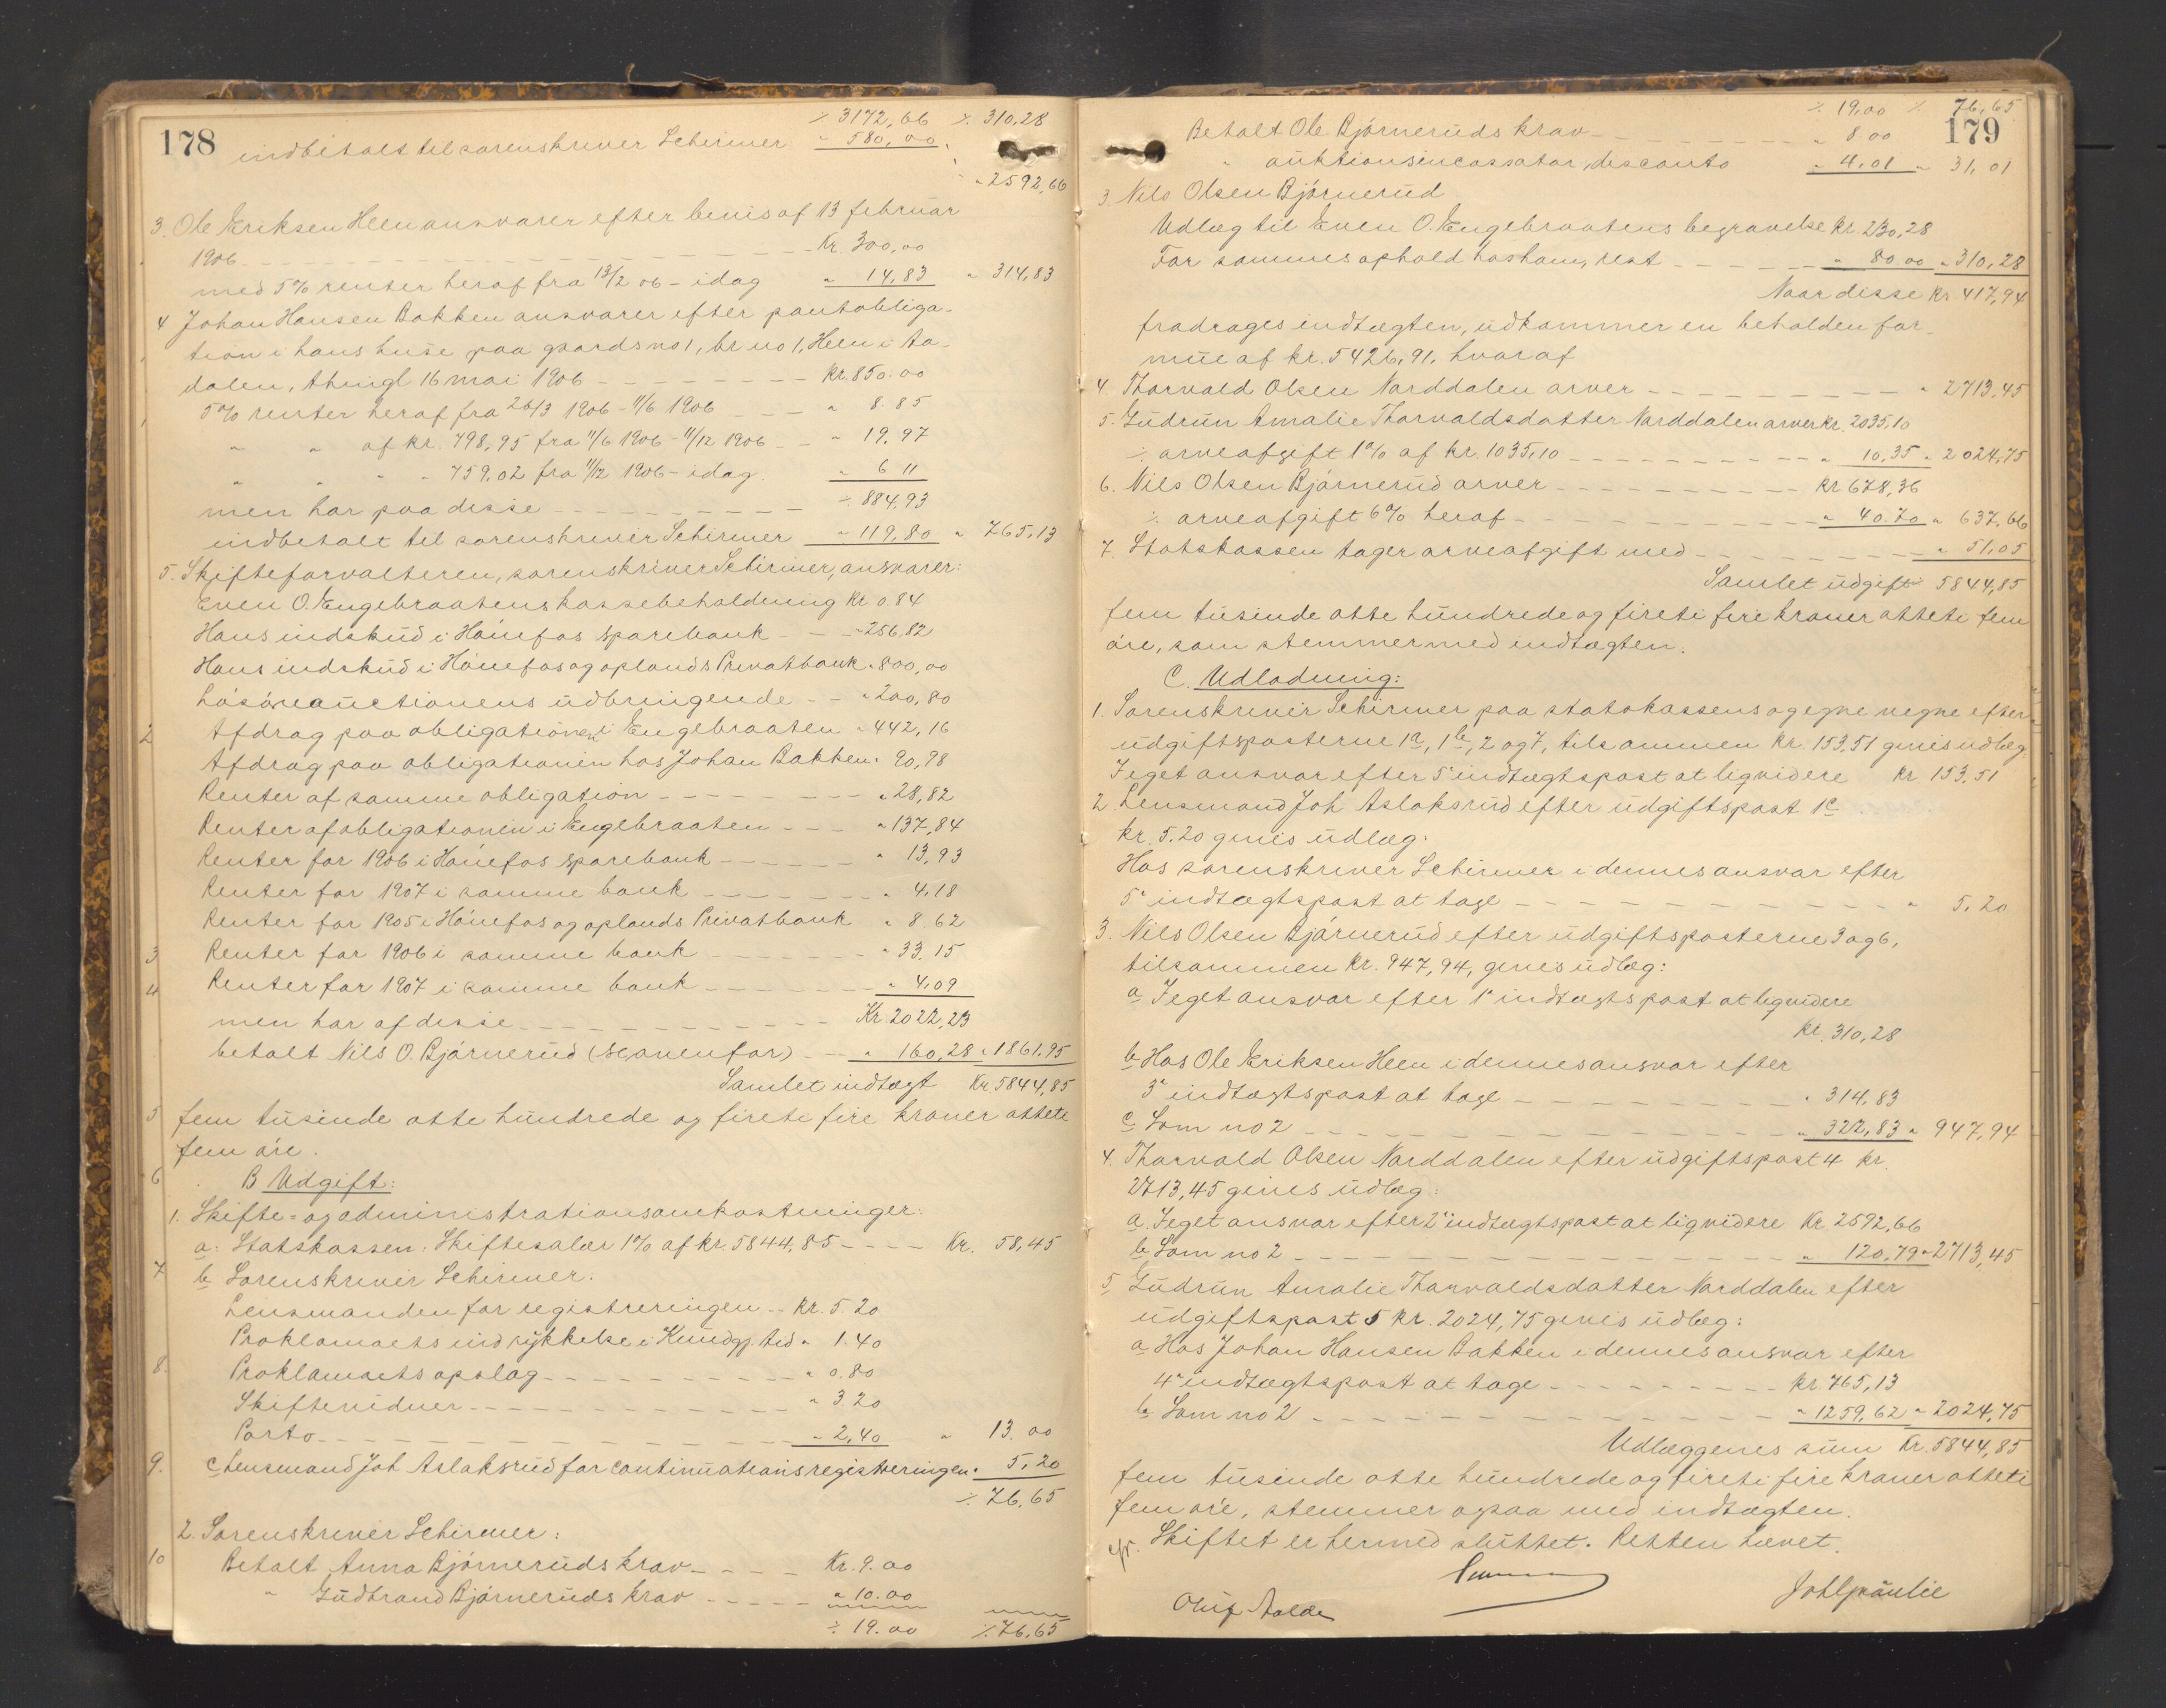 178
⁒ 3172,66 ⁒ 310,28
indbetalt til sorenskriver Schirmer " 580,00
" 2592,66
3. Ole Eriksen Heen ansvarer efter bevis af 13 februar
1906 Kr. 300,00
med 5% renter heraf fra 13/2 06 - idag " 14,83 " 314,83
4 Johan Hansen Bakken ansvarer efter pantobliga-
tion i hans huse paa gaardsno 1, br no 1, Heen i Aa-
dalen, thingl 16 mai 1906 Kr. 850.00
5% renter heraf fra 26/3 1906 - 11/6 1906 " 8.85
" " af kr. 798,95 fra 11/6 1906 - 11/12 1906 " 19,97
" " " " 759,02 fra 11/12 1906 - idag " 6 11
men har paa disse ⁒ 884,93
indbetalt til sorenskriver Schirmer " 119,80 " 765,13
5. Skifteforvalteren, sorenskriver Schirmer, ansvarer:
Even O. Engebraatens kassebeholdning Kr 0.84
Hans indskud i Hønefos sparebank " 256,82
Hans indskud i Hønefos og oplands Privatbank " 800,00
Løsøreauctionens udbringende " 200,80
2 Afdrag paa obligationen i Engebraaten " 442,16
Afdrag paa obligationen hos Johan Bakken " 90,98
Renter af samme obligation " 28,82
Renter af obligationen i Engebraaten " 137,84
Renter for 1906 i Hønefos sparebank " 13,93
Renter for 1907 i samme bank " 4,18
Renter for 1905 i Hønefos og oplands Privatbank " 8.62
3 Renter for 1906 i samme bank " 33,15
4 Renter for 1907 i samme bank " 4,09
men har af disse Kr 2022,23
betalt Nils O. Bjørnerud ( ) " 160,28 " 1861,95
Samlet indtægt Kr. 5844,85
5 fem tusinde otte hundrede og fireti fire kroner otteti
fem øre.
6 B Udgift:
1. Skifte- og administrationsomkostninger:
a. Statskassen: Skiftesalær 1% af kr. 5844,85 Kr. 58,45
7 b Sorenskriver Schirmer:
Lensmanden for registreringen Kr. 5.20
Proklamaets indrykkelse i Kundgj. tid " 1.40
8. Proklamaets opslag " 0.80
Skiftevidner " 3 20
Porto " 2,40 " 13.00
9. c Lensmand Joh Aslaksrud for continuationsregistreringen " 5,20
⁒ 76,65
2. Sorenskriver Schirmer:
10 Betalt Anna Bjørneruds krav Kr. 9.00
" Gudbrand Bjørneruds krav " 10.00
⁒ 19.00 ⁒ 76,65
179
⁒ 19,00 ⁒ 76,65
Betalt Ole Bjørneruds krav " 8 00
" auktionsincassator, disconto " 4,01 " 31,01
3. Nils Olsen Bjørnerud
Udlæg til Even O. Engebraatens begravelse Kr. 230,28
For sammes ophold hos ham, rest " 80 00 " 310,28
Naar disse Kr 417,94
fradrages indtægten, udkommer en beholden for-
mue af kr. 5426,91, hvoraf
4. Thorvald Olsen Norddalen arver " 2713,45
5. Gudrun Amalie Thorvaldsdatter Norddalen arver kr. 2035,10
⁒ arveafgift 1% af kr. 1035,10 " 10,35 " 2024,75
6. Nils Olsen Bjørnerud arver Kr 678,36
⁒ arveafgift 6% heraf " 40.70 " 637,66
7. Statskassen tager arveafgift med " 51,05
Samlet udgift 5844,85
fem tusinde otte hundrede og fireti fire kroner otteti fem
øre, som stemmer med indtægten.
C. Udlodning:
1. Sorenskriver Schirmer paa statskassens og egne vegne efter
udgiftsposterne 1a, 1b, 2 og 7, tilsammen Kr. 153,51 gives udlæg:
I eget ansvar efter 5' indtægtspost at liqvidere Kr 153,51
2 Lensmand Joh Aslaksrud efter udgiftspost 1c
kr. 5.20 gives udlæg:
Hos sorenskriver Schirmer i dennes ansvar efter
5' indtægtspost at tage " 5,20
3. Nils Olsen Bjørnerud efter udgiftsposterne 3 og 6,
tilsammen Kr. 947,94, gives udlæg:
a I eget ansvar efter 1' indtægtspost at liqvidere
Kr. 310,28
b Hos Ole Eriksen Heen i dennes ansvar efter
3' indtægtspost at tage " 314,83
c Som no 2 " 322,83 " 947,94
4. Thorvald Olsen Norddalen efter udgiftspost 4 kr.
2713,45 gives udlæg:
a. I eget ansvar efter 2' indtægtspost at liqvidere Kr 2592,66
b Som no 2 " 120,79 " 2713,45
5 Gudrun Amalie Thorvaldsdatter Norddalen efter
udgiftspost 5 kr. 2024,75 gives udlæg:
a Hos Johan Hansen Bakken i dennes ansvar efter
4' indtægtspost at tage Kr. 765,13
b Som no 2 " 1259,62 " 2024,75
Udlæggenes sum Kr. 5844,85
fem tusinde otte hundrede og fireti fire kroner otteti
fem øre, stemmer ogsaa med indtægten.
Skiftet er hermed sluttet. Retten hævet.